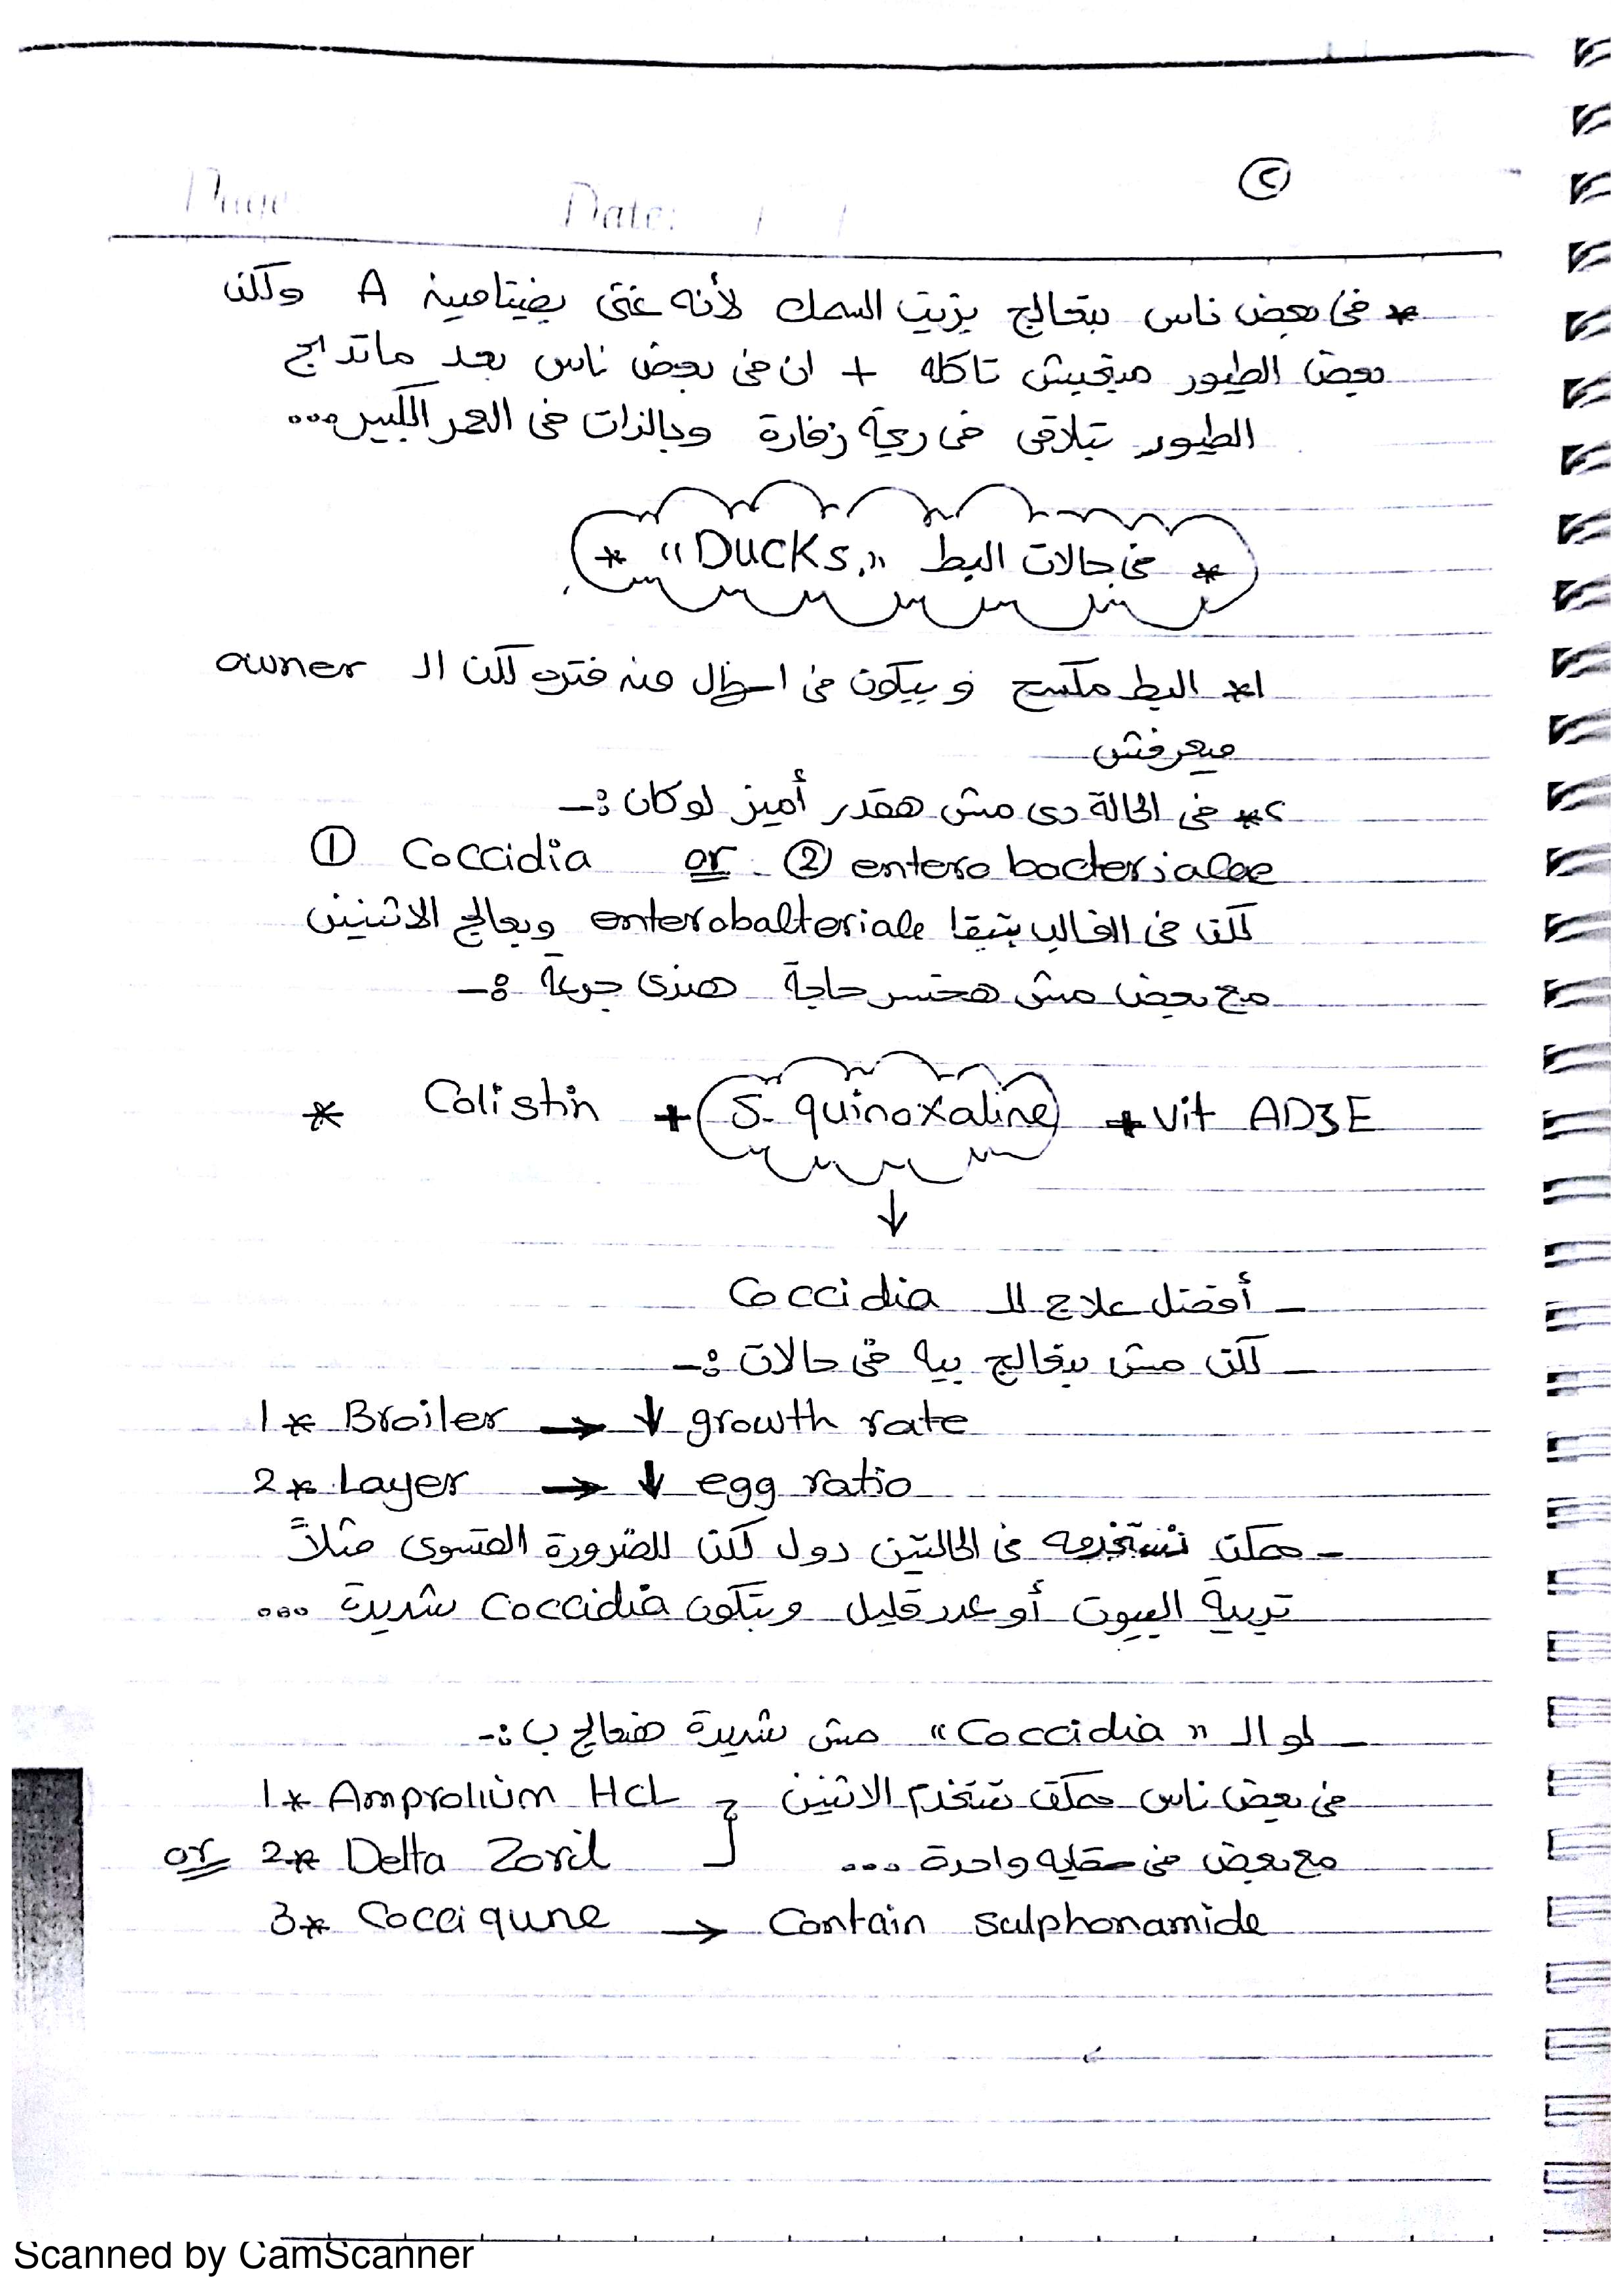 ٢
Page: Date: / /
* فى بعض ناس بتعالج بزيت السمك لأنه غنى بفيتامين A ولكن
بعض الطيور مبتحبش تاكله + ان فى بعض ناس بعد ماتدبح
الطيور بتلاقى فى ريحة زفارة وبالذات فى العمر الكبير...
* فى حالات البط "Ducks." *
١* البط مكسح وبيكون فى اسهال منه فتره لكن الـ owner
ميعرفش
٢* فى الحالة دى مش هقدر أميز لو كان :-
① Coccidia or ② entero bacterialae
لكن فى الغالب بتبقا enterobalteriale وبعالج الاتنين
مع بعض مش هخسر حاجة هندى جرعة :-
* Colistin + S. quinoxaline + vit AD3E
↓
- أفضل علاج للـ Coccidia
- لكن مش بنعالج بيه فى حالات :-
1* Broiler → ↓ growth rate
2* Layer → ↓ egg ratio
- ممكن نستخدمه فى الحالتين دول لكن للضرورة القسوى مثلاً
تربية البيوت أو عدد قليل وبتكون Coccidia شديدة ...
- لو الـ "Coccidia" مش شديدة هنعالج ب :-
1* Amprolium HCL فى بعض ناس ممكن تستخدم الاتنين
or 2* Delta Zoril مع بعض فى سقايه واحدة ...
3* Cocciqune → Contain sulphonamide
Scanned by CamScanner